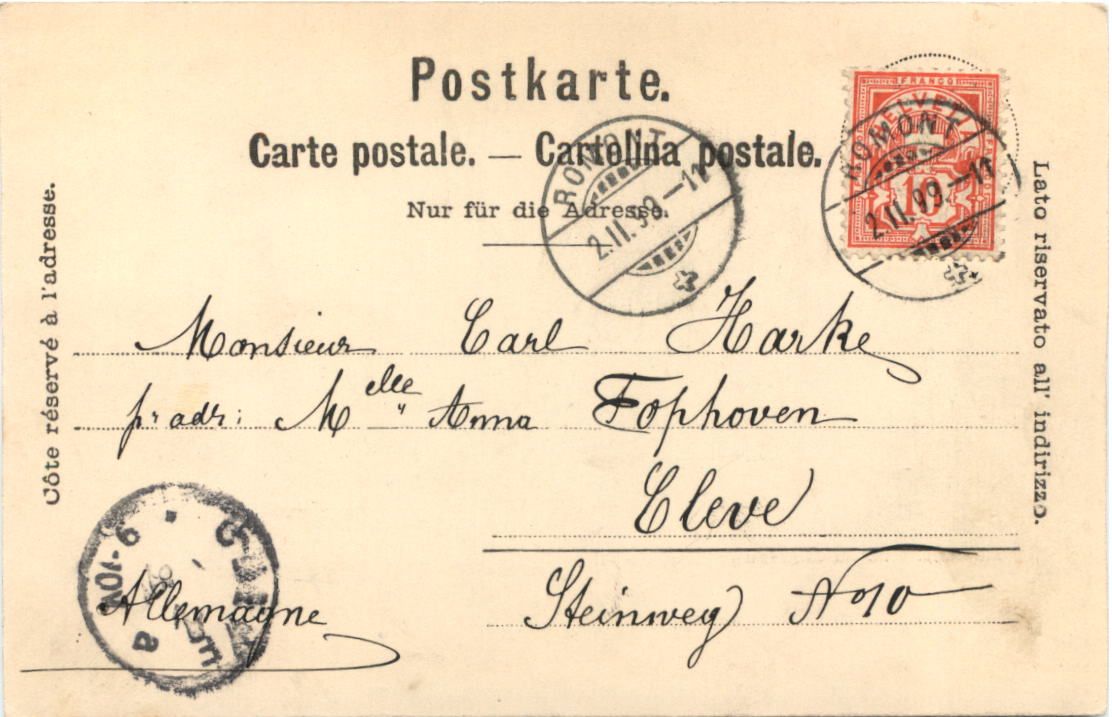 Postkarte.
Carte postale. — Cartolina postale.
Nur für die Adresse.
Côte réservé à l'adresse.
Lato riservato all' indirizzo.
FRANCO
HELVETIA
10
ROMONT
2.II.99.-11
ROMONT
2.II.99.-11
Monsieur Carl Harke
pr adr: Melle Anna Fophoven
Cleve
Steinweg No 10
Allemagne
9-10V
a